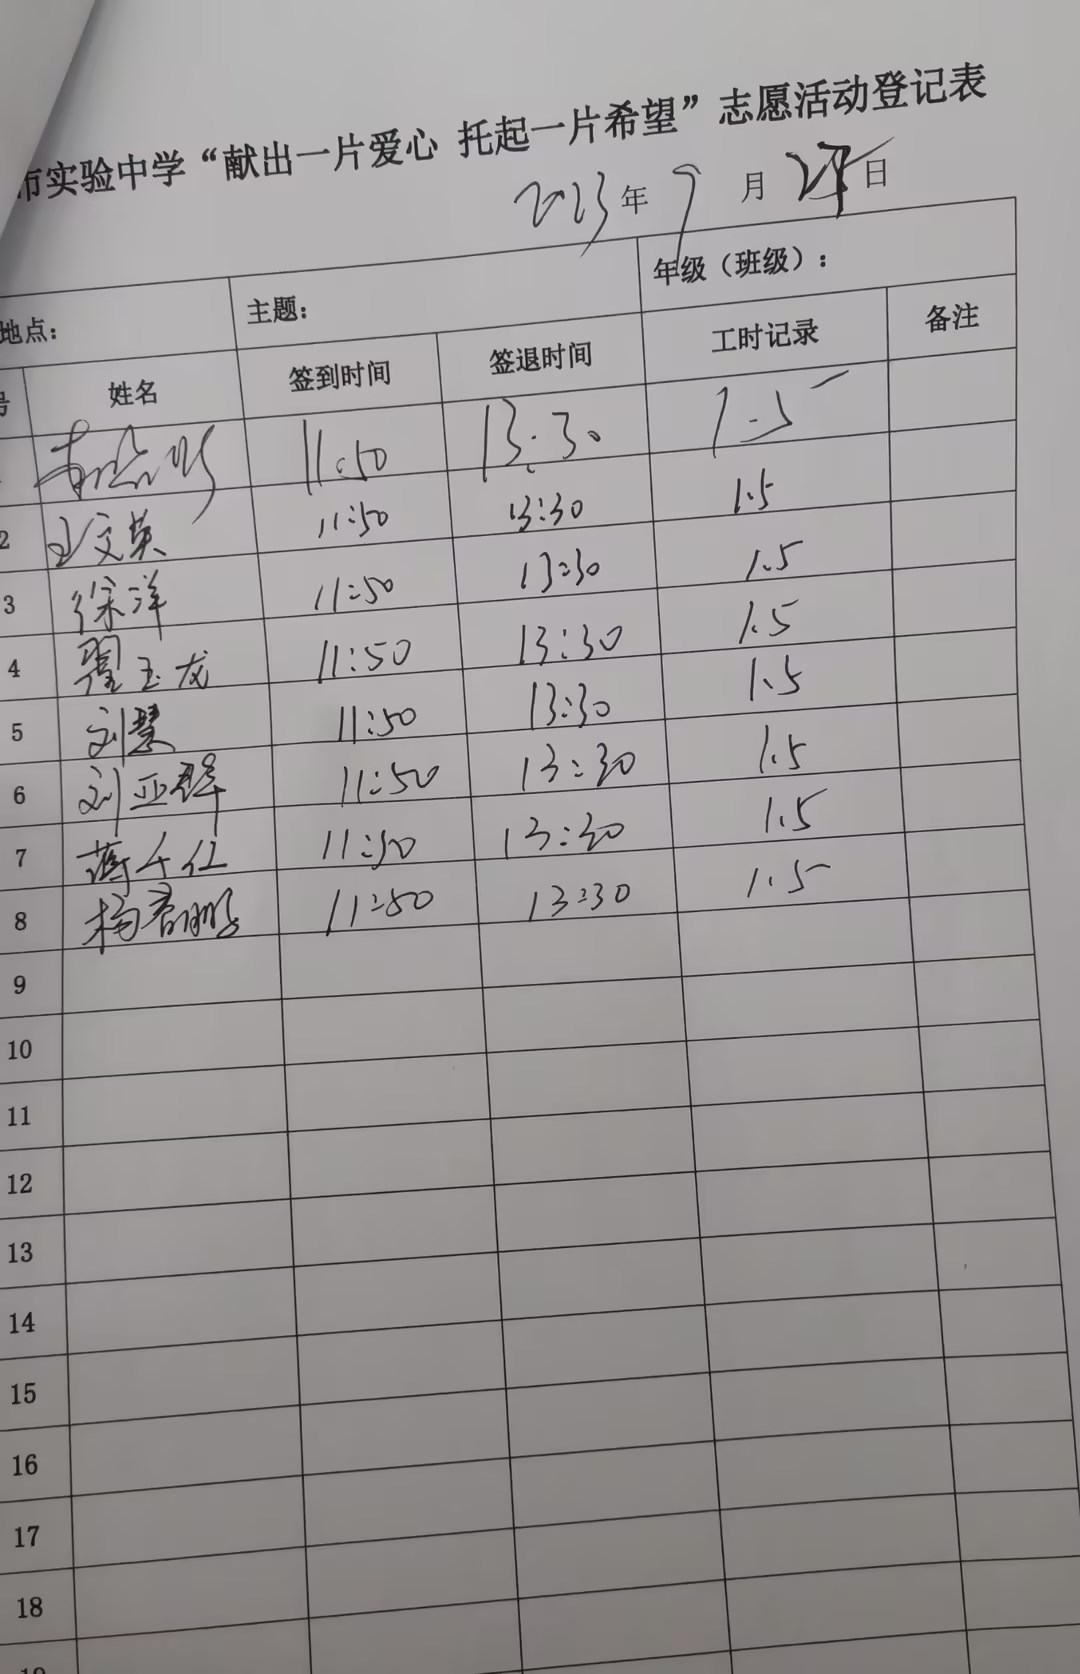 市实验中学“献出一片爱心 托起一片希望”志愿活动登记表
2023年9月日
地点： 主题： 年级（班级）：
号 姓名 签到时间 签退时间 工时记录 备注
11:50 13:30 1.5
2 王文英 11:50 13:30 1.5
3 徐洋 11:50 13:30 1.5
4 翟玉龙 11:50 13:30 1.5
5 刘慧 11:50 13:30 1.5
6 刘亚群 11:50 13:30 1.5
7 蒋仁 11:50 13:30 1.5
8 杨春鹏 11:50 13:30 1.5
9
10
11
12
13
14
15
16
17
18
19